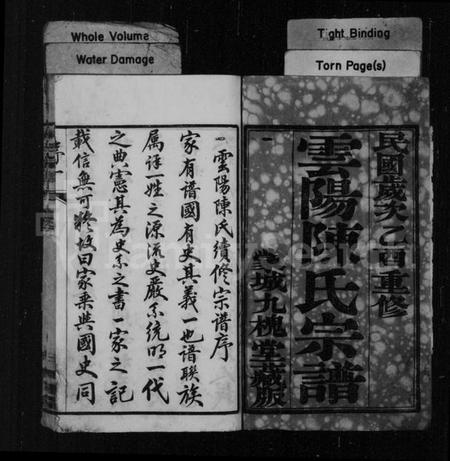 Whole Volume
Water Damage
Tight Binding
Torn Page(s)
民國歲次乙酉重修
雲陽陳氏宗譜
城九槐堂藏版
雲陽陳氏續修宗譜序
家有譜國有史其義一也譜聯族
屬詳一姓之源流史嚴系統明一代
之典憲其為史系之書一家之記
載信無可疑故曰家乘與國史同